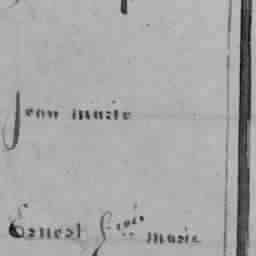 Jean marie
Ernest G.çois marie